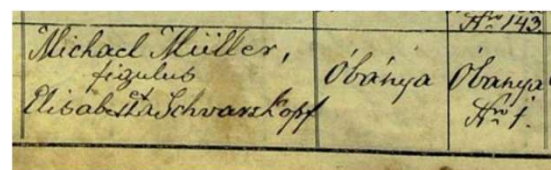 Nro 143
Michael Müller,
figulus
et
Elisabetha Schvarszkopf
Óbánya
Óbanya
Nro 1.